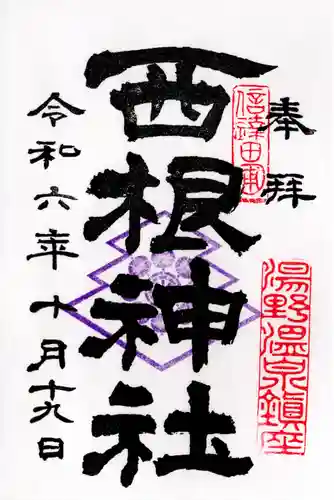 奉拝
信達四郡
湯野温泉鎮座
西根神社
令和六年十月十九日